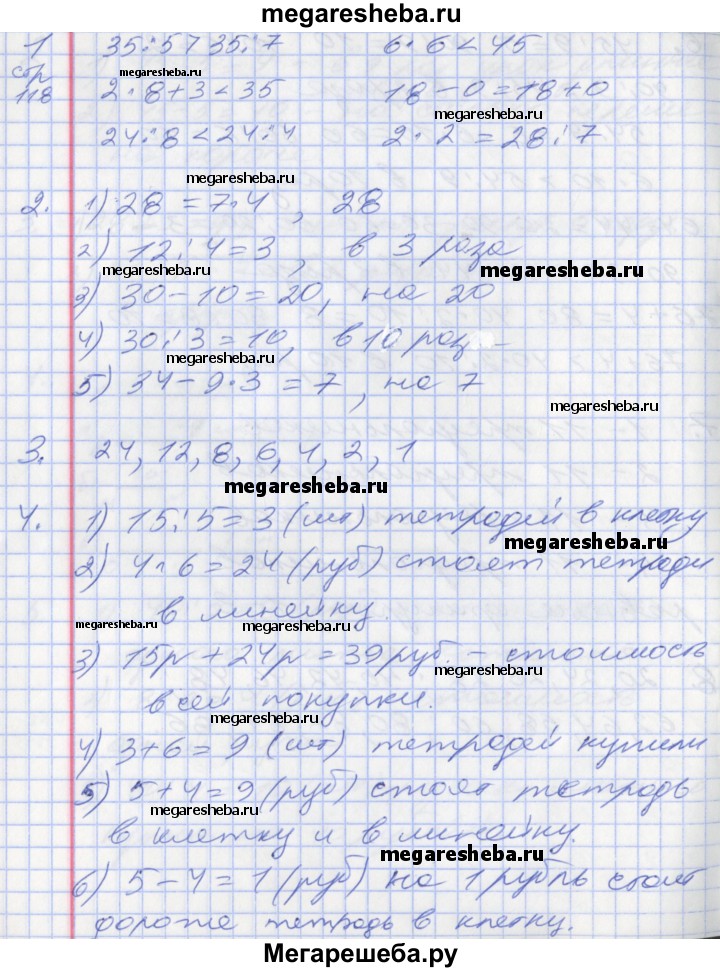 megaresheba.ru
1 35:5>35:7 6·6<45
megaresheba.ru
стр 118 2·8+3<35 18-0=18+0
megaresheba.ru
24:8<24:4 2·2=28:7
megaresheba.ru
2. 1) 28=7·4, 28
2) 12:4=3, в 3 раза
megaresheba.ru
megaresheba.ru
3) 30-10=20, на 20
4) 30:3=10, в 10 раз
megaresheba.ru
5) 34-9·3=7, на 7
megaresheba.ru
3. 24, 12, 8, 6, 4, 2, 1
megaresheba.ru
4. 1) 15:5=3 (шт) тетрадей в клетку
megaresheba.ru
2) 4·6=24 (руб) стоят тетради
в линейку.
megaresheba.ru
megaresheba.ru
3) 15р+24р=39руб. - стоимость
megaresheba.ru
всей покупки.
megaresheba.ru
4) 3+6=9 (шт) тетрадей купили
5) 5+4=9 (руб) стоят тетрадь
megaresheba.ru
в клетку и в линейку.
megaresheba.ru
6) 5-4=1 (руб) на 1 рубль стоит
дороже тетрадь в клетку.
Мегарешеба.ру